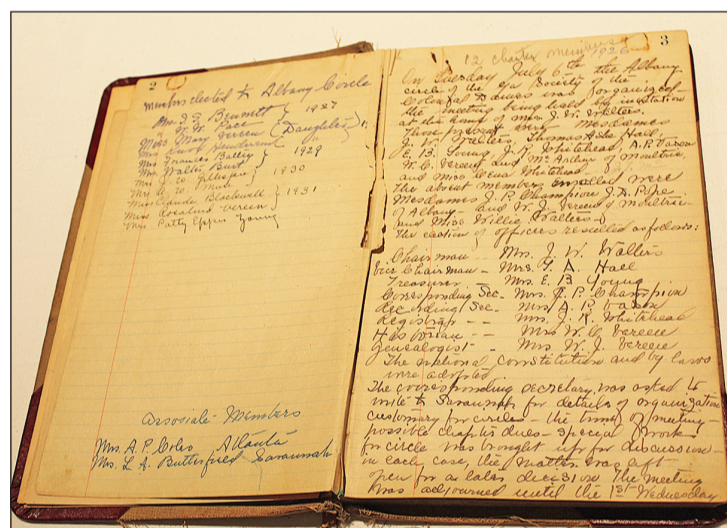 2
Members elected to Albany Circle
Mrs. J. S. Bennett } 1927
" W. W. Pace
Miss Mary Vereen (Daughter)
Mrs Henderson
Mrs Frances Bailey } 1929
Mrs. Walter Burt
Mrs. Gillespie } 1930
Mrs.
Miss Claude Blackwell } 1931
Miss Rosalind Vereen
Mrs Patty Young
Associate Members
Mrs. A. P. Coles Atlanta
Mrs. L. A. Butterfield Savannah
3
12 charter members 1926
On Tuesday July 6th the Albany
circle of the Ga Society of the
Colonial Dames was organized
the meeting being held by invitation
at the home of Mrs. J. W. Walters.
Those present were Mesdames
J. W. Walters, Hall,
E. B. Young, J. R. Whitehead, A. P. Vason
W. C. Vereen and McArthur of Moultrie,
and Miss Whitehead.
The absent members enrolled were
Mesdames J. P. Champion J. A. Pope
of Albany and W. J. Vereen of Moultrie
and Miss Willie Walters.
The election of officers resulted as follows:
Chairman - Mrs. J. W. Walters
Vice Chairman - Mrs. Hall
Treasurer - Mrs. E. B Young
Corresponding Sec - Mrs. J. P. Champion
Recording Sec - Mrs A. P. Vason
Registrar - - Mrs. J. R. Whitehead
Historian - Mrs W. C. Vereen
Genealogist - Mrs W. J. Vereen
The national constitution and by laws
were adopted
The corresponding secretary was asked to
write to Savannah for details of organization
customary for circles - the time of meeting
possible chapter dues - special work
for circle was brought up for discussion
in each case, the matter was left
open for a later decision The meeting
was adjourned until the 1st Wednesday